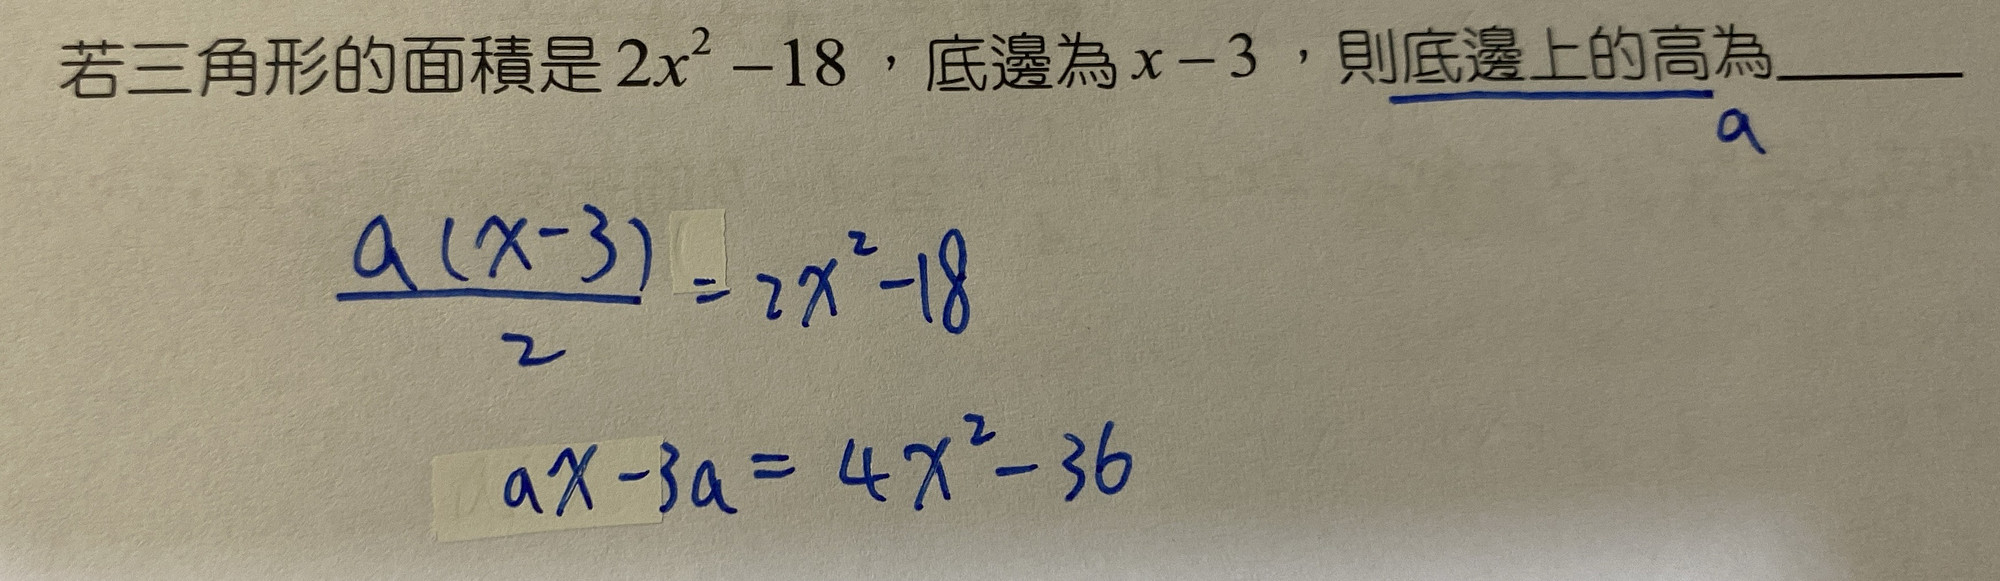 若三角形的面積是 2x² −18，底邊為 x − 3，則底邊上的高為______
a
a(x-3)/2 = 2x²-18
ax-3a = 4x²-36